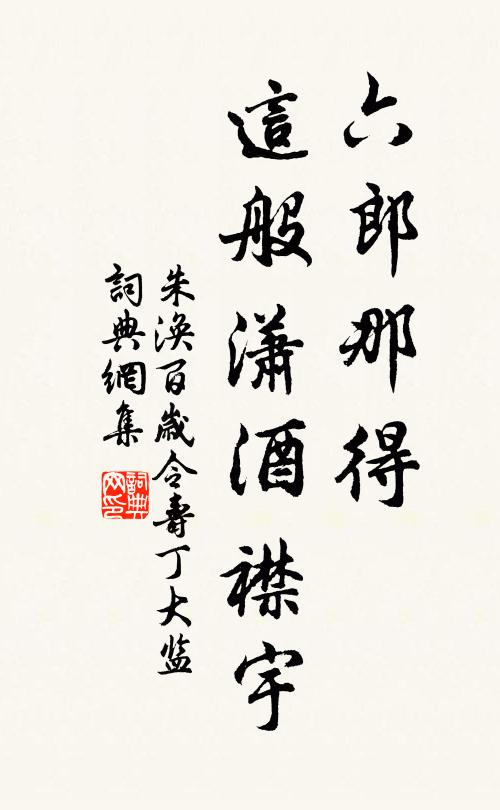 六郎那得
這般瀟酒襟宇
朱渙百歲令壽丁大监
詞典網集
詞典网印